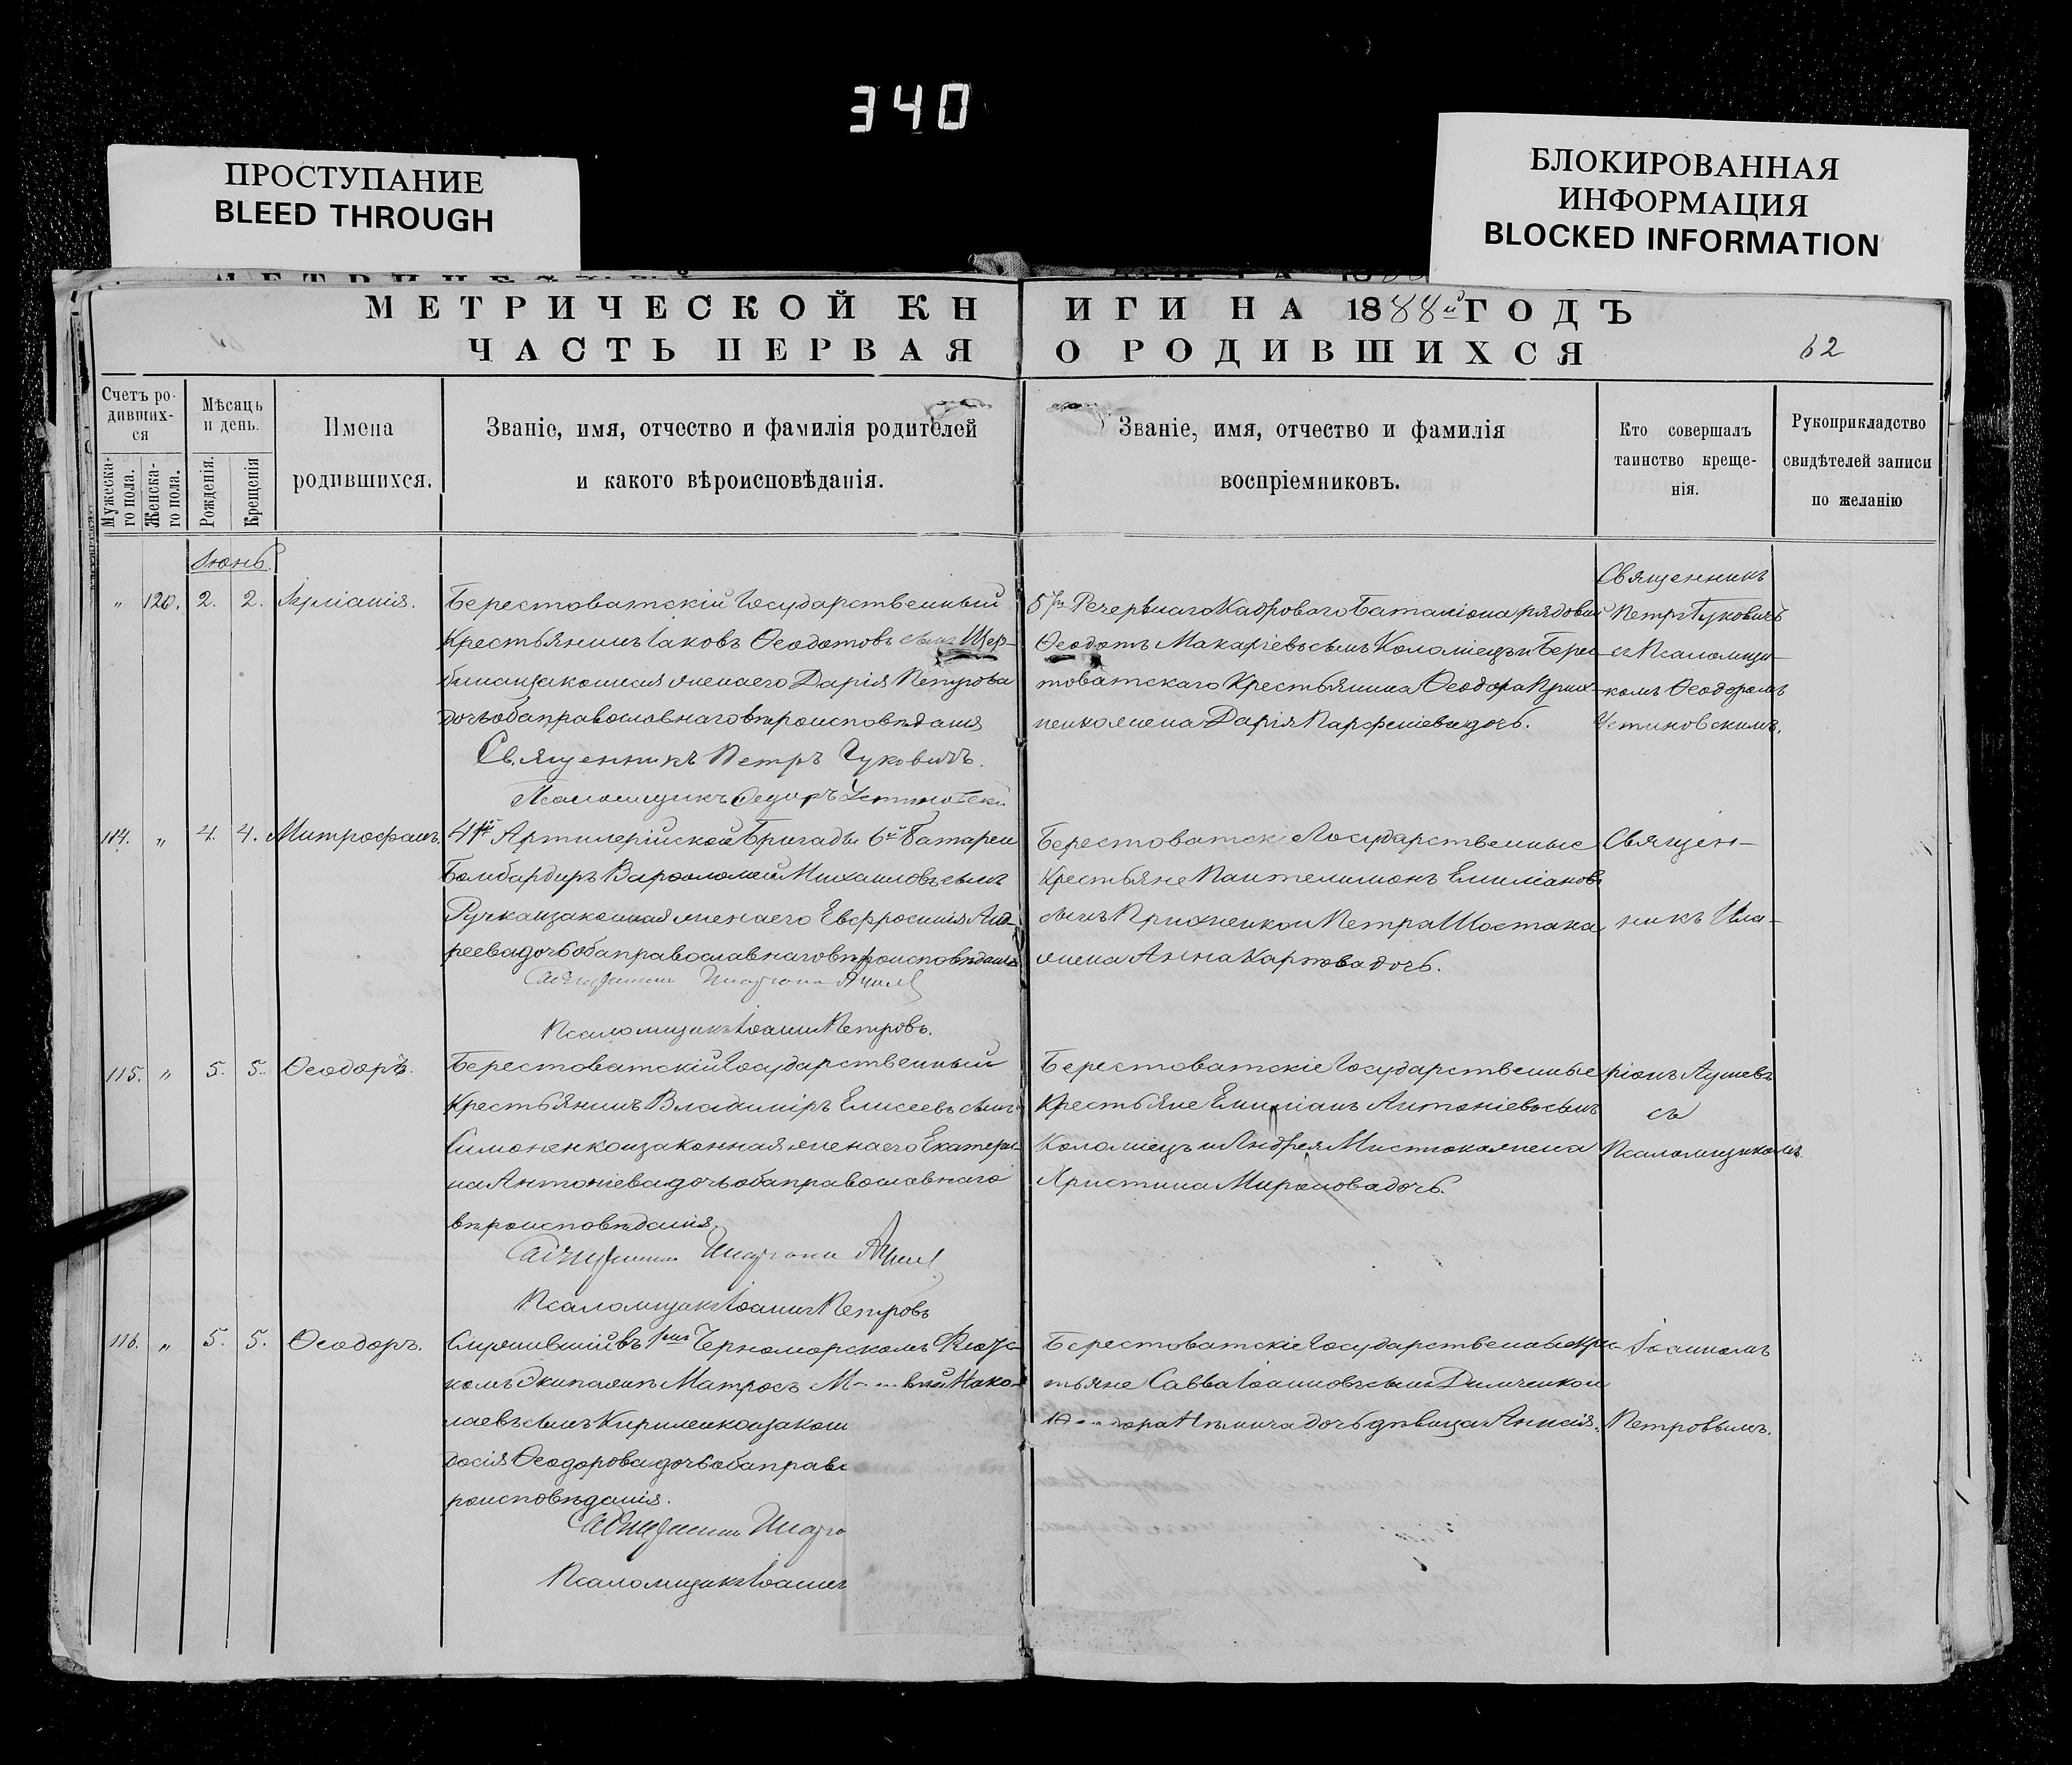 340
ПРОСТУПАНИЕ
BLEED THROUGH
БЛОКИРОВАННАЯ
ИНФОРМАЦИЯ
BLOCKED INFORMATION
МЕТРИЧЕСКОЙ КНИГИ НА 1888й ГОДЪ
ЧАСТЬ ПЕРВАЯ О РОДИВШИХСЯ
62
Счетъ ро-
дивших-
ся
Мужеска-
го пола.
Женска-
го пола.
Мѣсяць
и день.
Рожденія.
Крещенія
Имена
родившихся.
Званіе, имя, отчество и фамилія родителей
и какого вѣроисповѣданія.
Званіе, имя, отчество и фамилія
воспріемниковъ.
Кто совершалъ
таинство креще-
нія.
Рукоприкладство
свидѣтелей записи
по желанію
Іюнь.
" 120. 2. 2. Іуліанія.
Берестоватскій Государственный
Крестьянинъ Іаковъ Ѳеодотовъ сынъ Щер-
бина и законная жена его Дарія Петрова
дочь оба православнаго вѣроисповѣданія
Священникъ Петръ
Псаломщикъ Ѳедоръ
57й Резервнаго Кадроваго Баталіона рядовой
Ѳеодотъ Макаріевъ сынъ Коломіецъ и Берес-
товатскаго Крестьянина Ѳеодора Прих-
ненко жена Дарія Парфеніева дочь.
Священникъ
Петръ
съ Псаломщи-
комъ Ѳеодоромъ
Устиновскимъ.
114. " 4. 4. Митрофанъ.
41й Артилерійской Бригады 6й Батареи
Бомбардиръ Варѳоломей Михаиловъ сынъ
Ручка и законная жена его Евфросинія Анд-
реева дочь оба православнаго вѣроисповѣданія
Псаломщикъ Іоаннъ Петровъ.
Берестоватск Государственные
Крестьяне Пантелимонъ Емиліановъ
сынъ Прихненко и Петра Шостака
жена Анна Карпова дочь.
Священ-
никъ Ила-
115. " 5. 5. Ѳеодоръ.
Берестоватскій Государственный
Крестьянинъ Владиміръ Елисеевъ сынъ
Симоненко и законная жена его Екатери-
на Антоніева дочь оба православнаго
вѣроисповѣданія.
Псаломщикъ Іоаннъ Петровъ
Берестоватскіе Государственные
Крестьяне Емиліанъ Антоніевъ сынъ
Коломіецъ и Андрея жена
Христина Миронова дочь.
ріонъ
съ
Псаломщикомъ
116. " 5. 5. Ѳеодоръ.
Служившій въ 1мъ Черноморскомъ Флотс-
комъ Экипажѣ Матросъ М Нико-
лаевъ сынъ Кириленко и закон
досія Ѳеодорова дочь оба правс
роисповѣданія.
Псаломщикъ Іоаннъ
Берестоватскіе Государственные Крес-
тьяне Савва Іоанновъ сынъ Димченко и
дочь дѣвица Анисія.
Іоанномъ
Петровымъ.